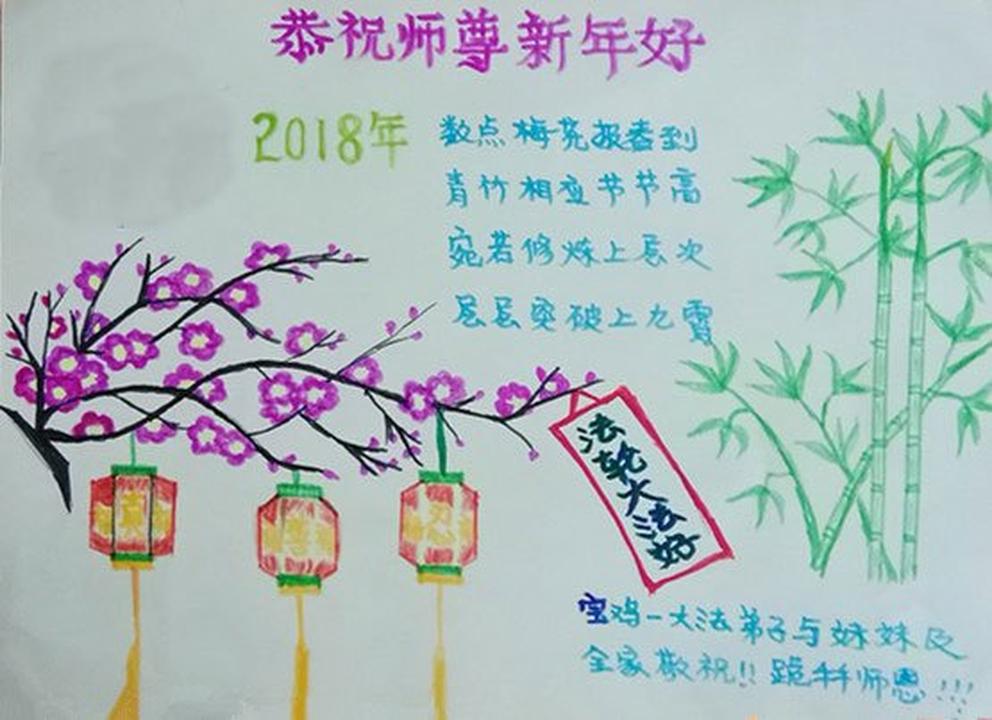 恭祝师尊新年好
2018年
数点梅花报春到
青竹相查节节高
宛若修炼上层次
层层突破上九霄
法轮大法好
真
善
忍
宝鸡一大法弟子与妹妹及
全家敬祝!! 跪拜师恩!!!